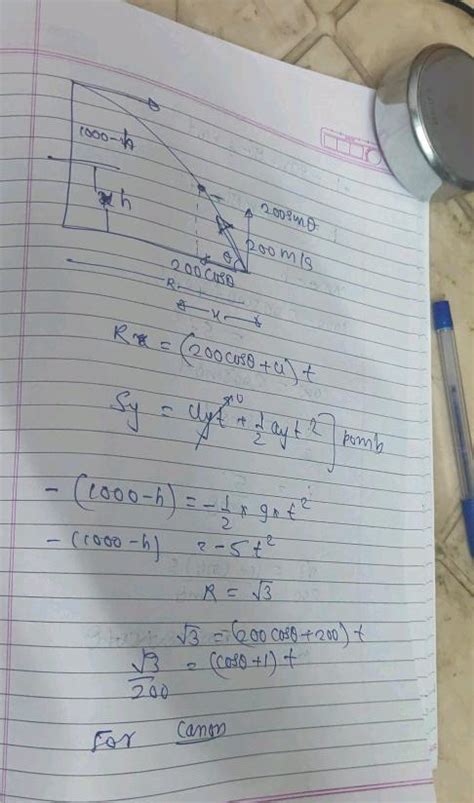 1000-h
h
200sinθ
200m/s
θ
200cosθ
R
x
R = (200cosθ+u) t
Sy = uyt + 1/2 ayt² ] bomb
0
- (1000-h) = -1/2 × g × t²
- (1000-h) = -5t²
R = √3
√3 = (200cosθ+200) t
√3/200 = (cosθ+1) t
For Canon